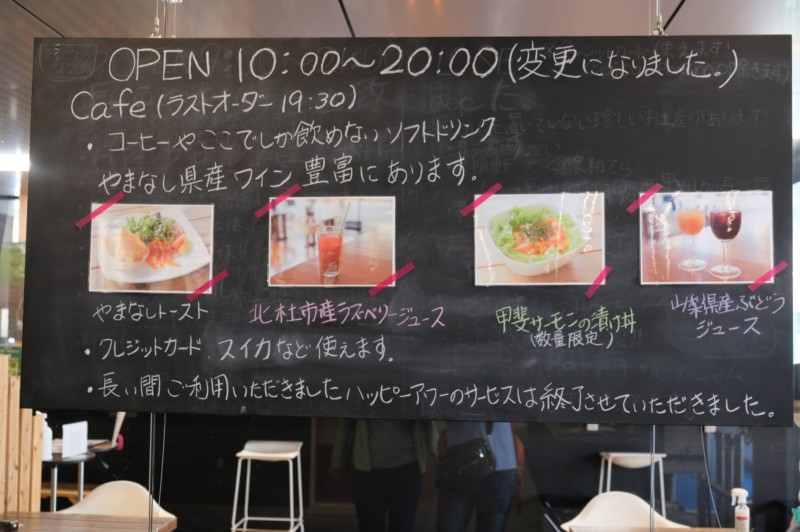 OPEN 10:00〜20:00(変更になりました。)
Cafe(ラストオーダー19:30)
・コーヒーやここでしか飲めないソフトドリンク
やまなし県産ワイン豊富にあります。
やまなしトースト
北杜市産ラズベリージュース
甲斐サーモンの漬け丼
(数量限定)
山梨県産ぶどう
ジュース
・クレジットカード、スイカなど使えます。
・長い間ご利用いただきましたハッピーアワーのサービスは終了させていただきました。